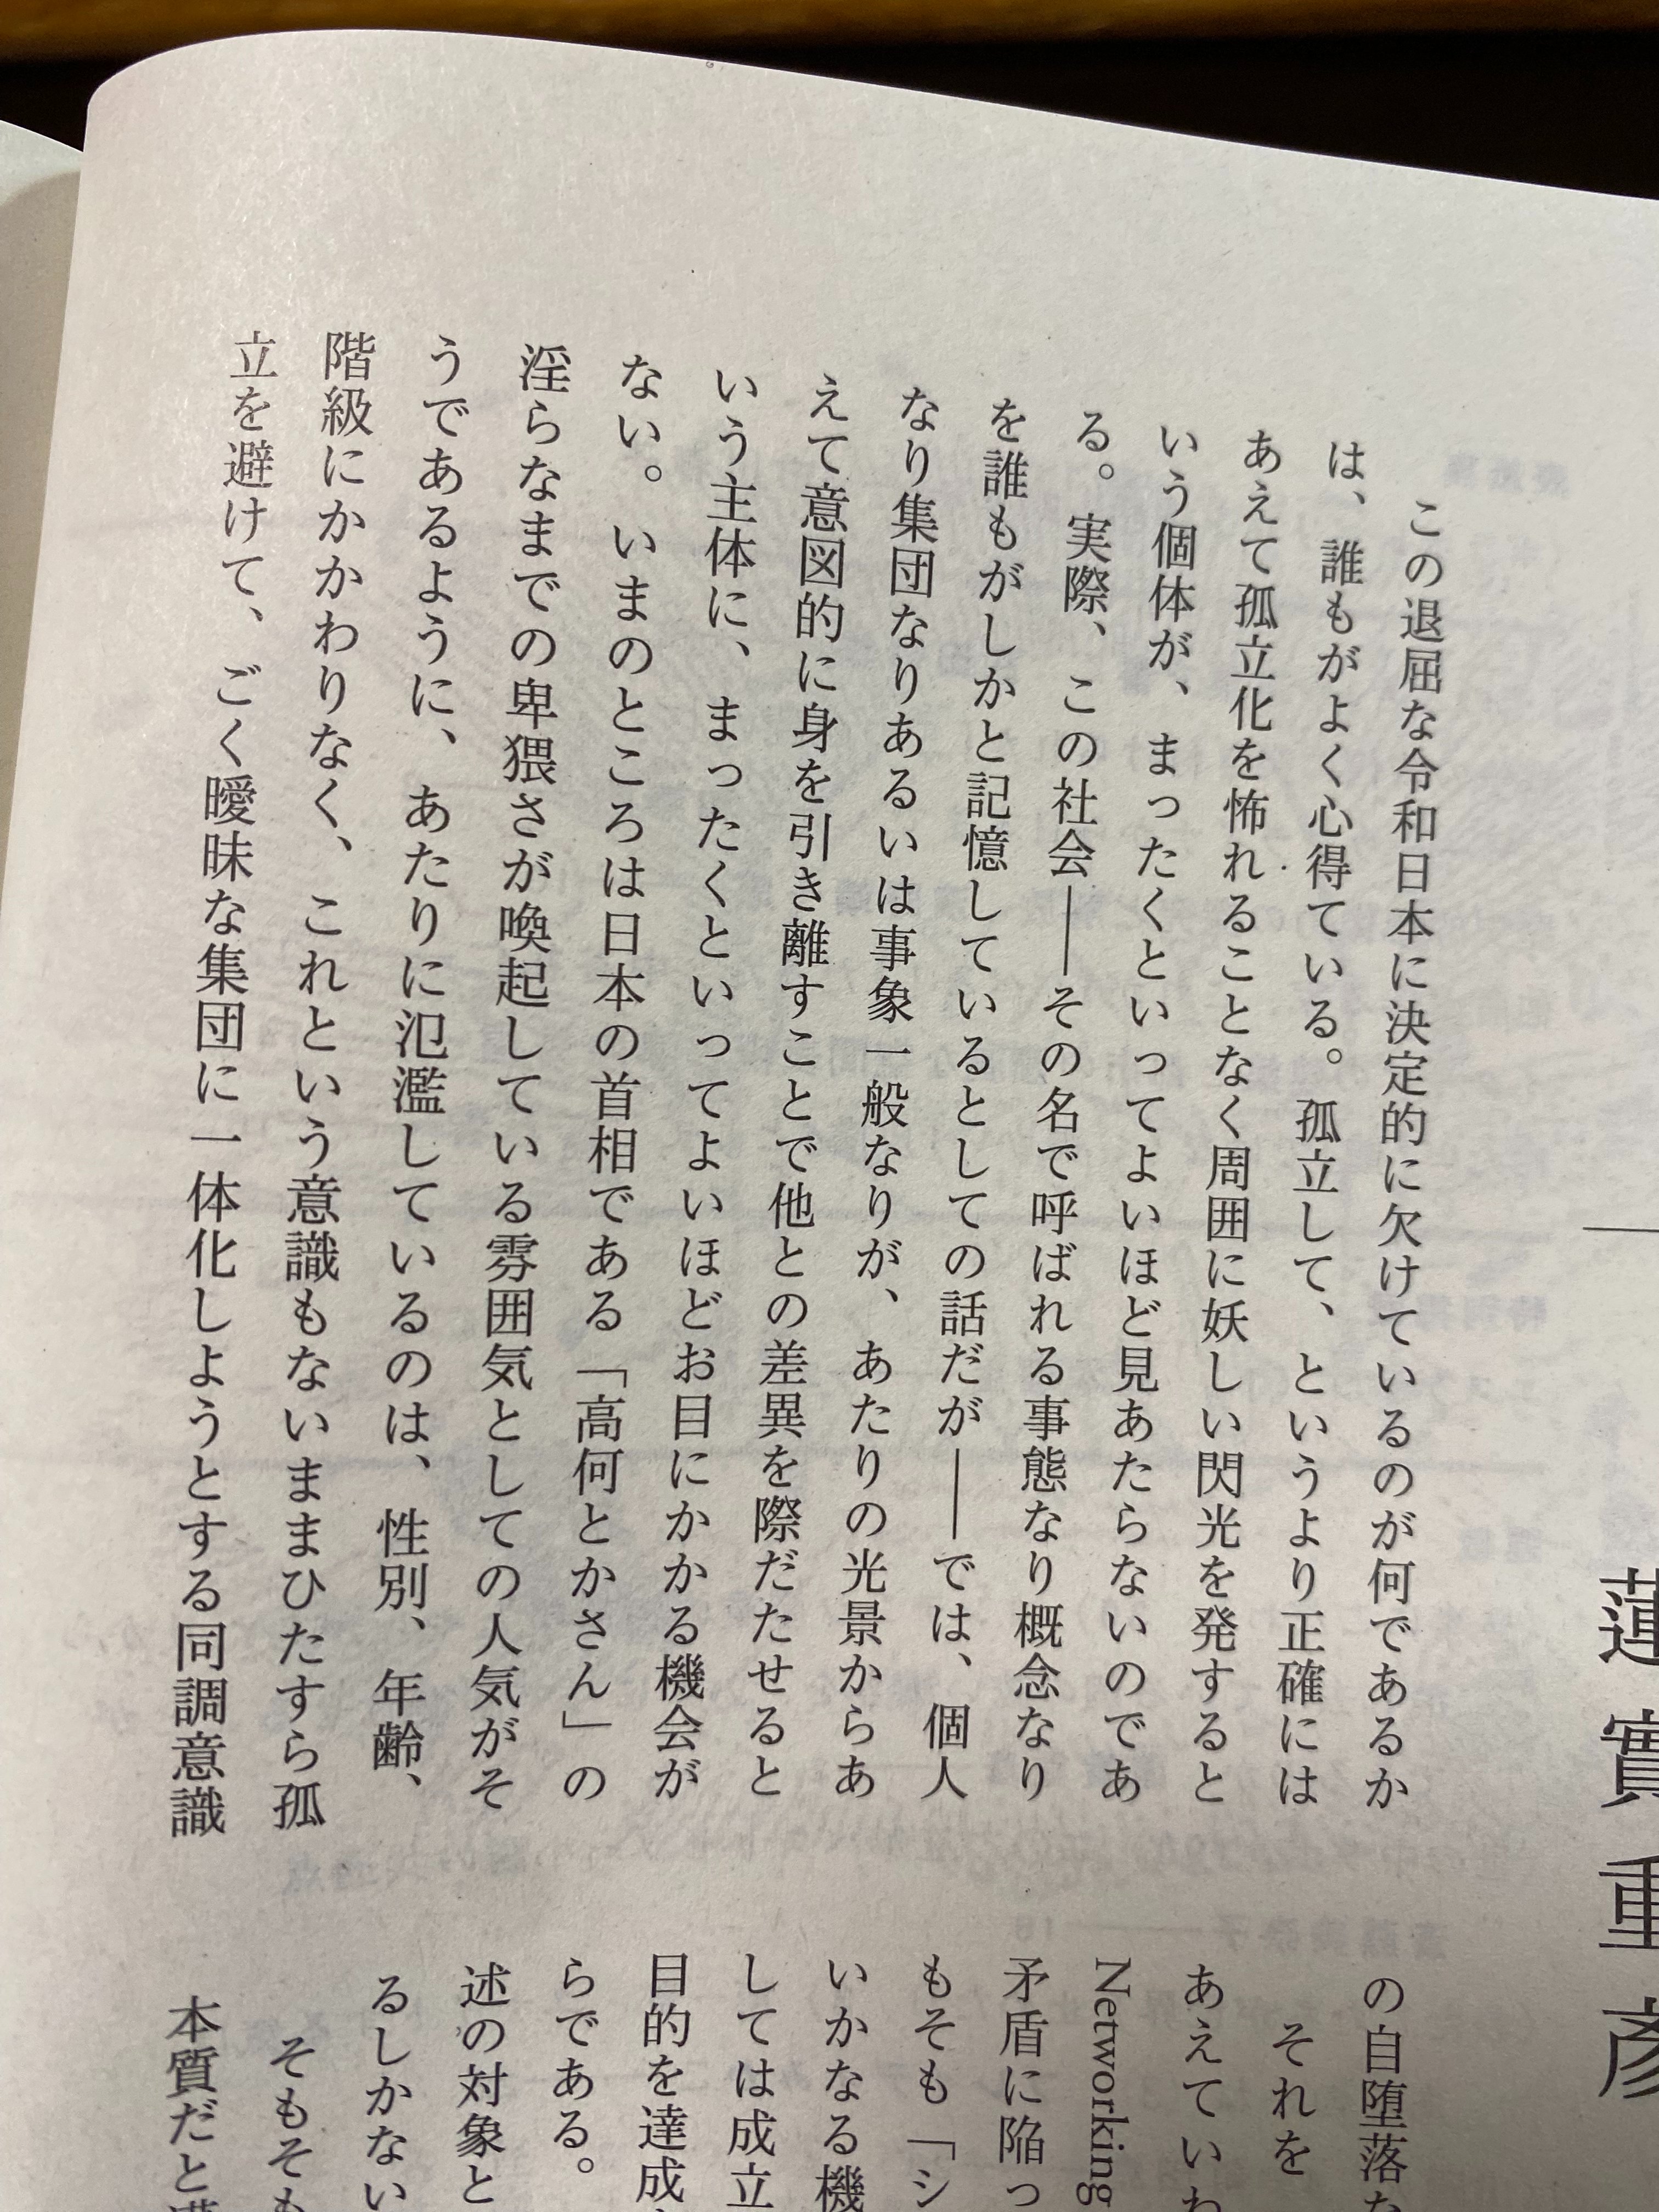 蓮實重彥
この退屈な令和日本に決定的に欠けているのが何であるか
は、誰もがよく心得ている。孤立して、というより正確には
あえて孤立化を怖れることなく周囲に妖しい閃光を発すると
いう個体が、まったくといってよいほど見あたらないのであ
る。実際、この社会――その名で呼ばれる事態なり概念なり
を誰もがしかと記憶しているとしての話だが――では、個人
なり集団なりあるいは事象一般なりが、あたりの光景からあ
えて意図的に身を引き離すことで他との差異を際だたせると
いう主体に、まったくといってよいほどお目にかかる機会が
ない。いまのところは日本の首相である「高何とかさん」の
淫らなまでの卑猥さが喚起している雰囲気としての人気がそ
うであるように、あたりに氾濫しているのは、性別、年齢、
階級にかかわりなく、これという意識もないままひたすら孤
立を避けて、ごく曖昧な集団に一体化しようとする同調意識
の自堕落な
それを
あえていわ
Networking
矛盾に陥っ
もそも「シ
いかなる機
しては成立
目的を達成
らである。
述の対象と
るしかない
そもそも
本質だと